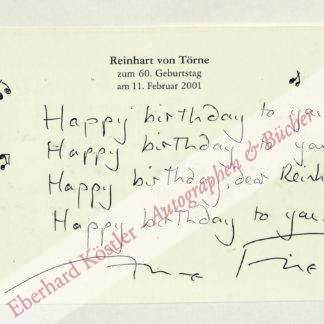 Reinhart von Törne
zum 60. Geburtstag
am 11. Februar 2001
Happy birthday to you
Happy birthday to you
Happy birthday, dear Reinh
Happy birthday to you.
Eberhard Köstler - Autographen & Bücher